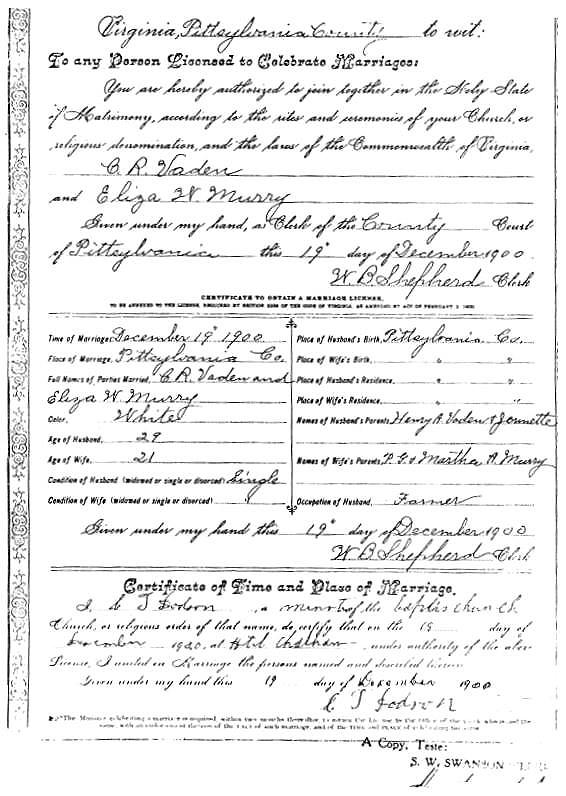 Virginia, Pittsylvania County to wit:
To any Person Licensed to Celebrate Marriages:
You are hereby authorized to join together in the Holy State
of Matrimony, according to the rites and ceremonies of your Church, or
religious denomination, and the laws of the Commonwealth of Virginia,
C. R. Vaden
and Eliza W. Murry
Given under my hand, as Clerk of the County Court
of Pittsylvania this 19" day of December 1900
W. B. Shepherd Clerk
CERTIFICATE TO OBTAIN A MARRIAGE LICENSE,
TO BE ANNEXED TO THE LICENSE, REQUIRED BY SECTION OF THE CODE OF VIRGINIA, AS AMENDED BY ACT OF FEBRUARY
Time of Marriage, December 19" 1900
Place of Marriage, Pittsylvania Co.
Full Names of Parties Married, C. R. Vaden and
Eliza W. Murry
Color, White
Age of Husband, 29
Age of Wife, 21
Condition of Husband (widowed or single or divorced) Single
Condition of Wife (widowed or single or divorced) "
Place of Husband's Birth, Pittsylvania Co.
Place of Wife's Birth, " "
Place of Husband's Residence, " "
Place of Wife's Residence, " "
Names of Husband's Parents Henry A. Vaden & Jennette
Names of Wife's Parents, P. G. & Martha A. Murry
Occupation of Husband, Farmer
Given under my hand this 19" day of December 1900
W. B. Shepherd Clerk
Certificate of Time and Place of Marriage.
I, C T Dodson, a of the baptis church
Church, or religious order of that name, do certify that on the 19 day of
December 1900, at Hotel Chatham under authority of the above
License, I united in Marriage the persons named and described therein.
Given under my hand this 19 day of December 1900
C T Dodson
A Copy, Teste:
S. W. SWANSON